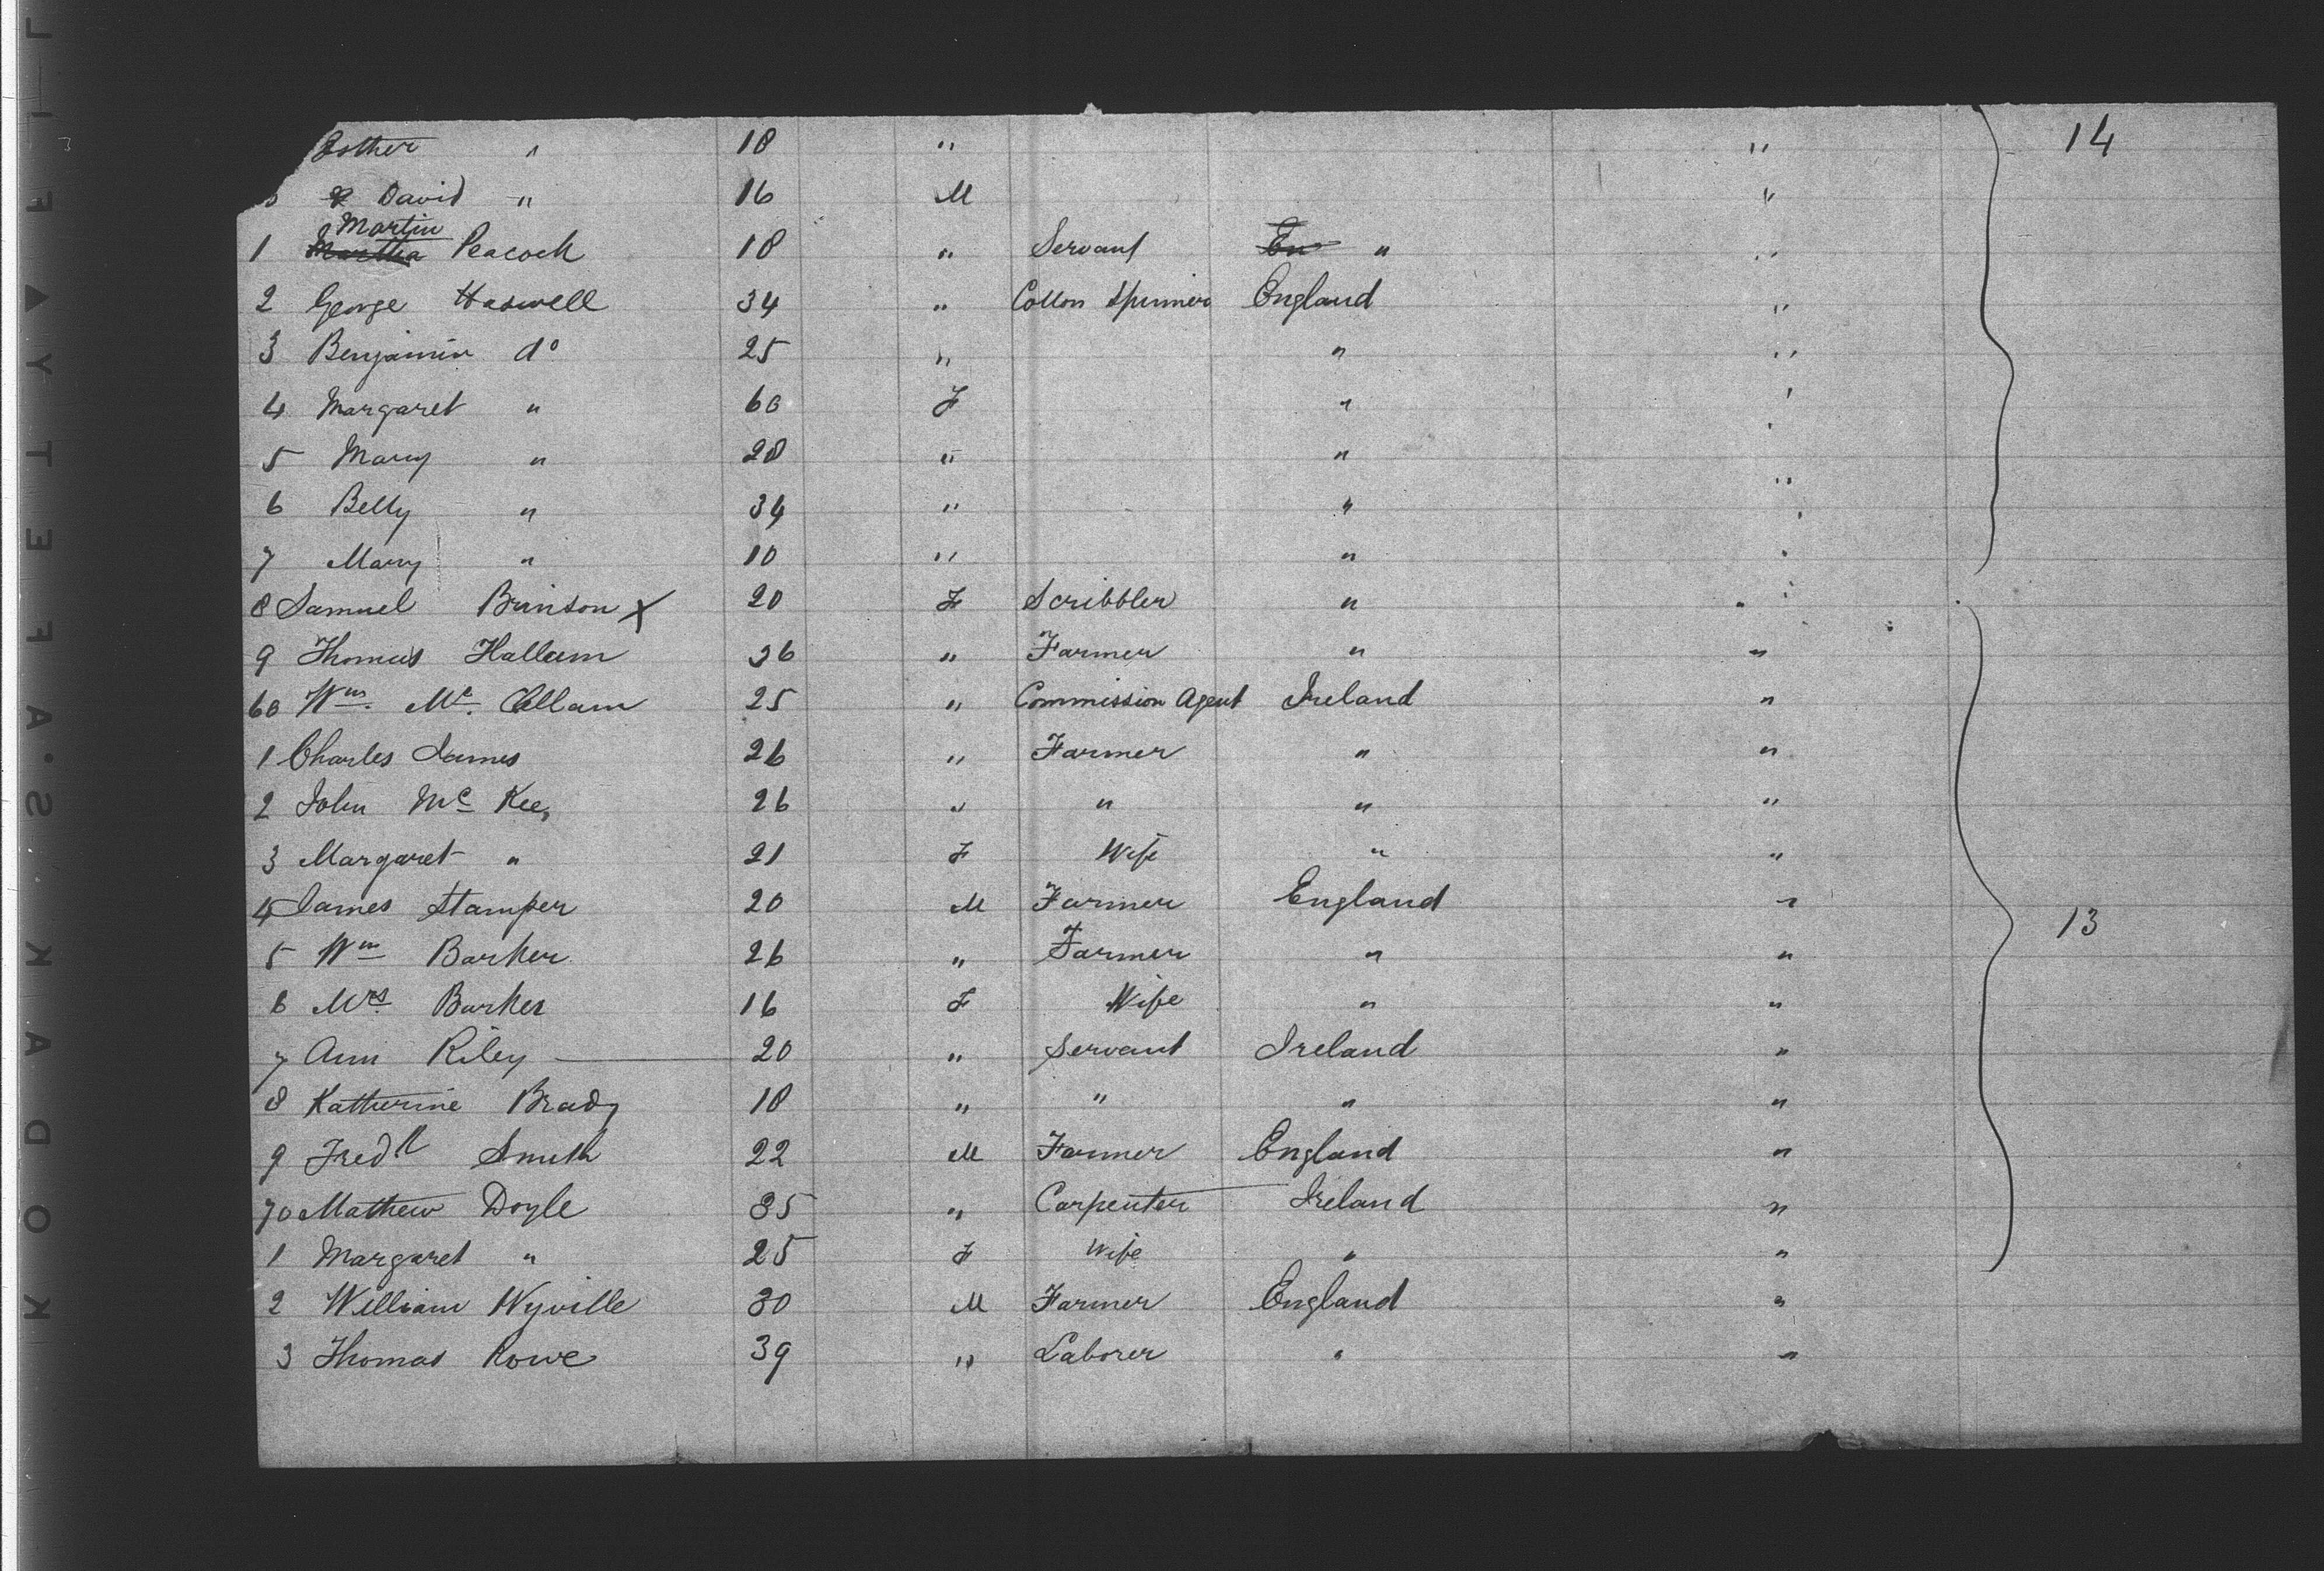 Esther " 18 " " 14
& David " 16 M "
Martin
1 Martha Peacock 18 " Servant En " "
2 George Haswell 34 " Cotton Spinner England "
3 Benjamin do 25 " " "
4 Margaret " 60 F " "
5 Mary " 28 " " "
6 Betty " 34 " " "
7 Mary " 10 " " "
8 Samuel Brinson X 20 F Scribbler " "
9 Thomas Hallam 36 " Farmer " "
60 Wm. Mc. Callam 25 " Commission Agent Ireland "
1 Charles James 26 " Farmer " "
2 John Mc Kee, 26 " " " "
3 Margaret " 21 F Wife " "
4 James Stamper 20 M Farmer England " 13
5 Wm Barker 26 " Farmer " "
6 Mrs. Barker 16 F Wife " "
7 Ann Riley 20 " Servant Ireland "
8 Katherine Brady 18 " " " "
9 Fredk Smith 22 M Farmer England "
70 Mathew Doyle 35 " Carpenter Ireland "
1 Margaret " 25 F Wife " "
2 William Wyville 30 M Farmer England "
3 Thomas Rowe 39 " Laborer " "
KODAK·SAFETY FIL